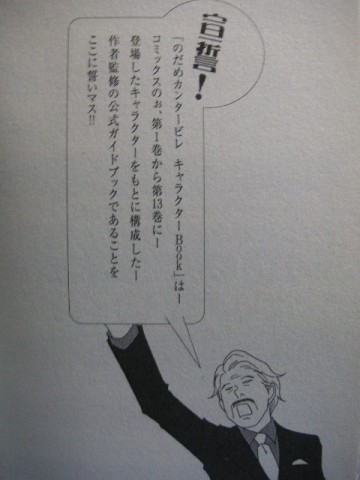 宣誓!
「のだめカンタービレ キャラクターBook」はー
コミックスのぉ、第1巻から第13巻にー
登場したキャラクターをもとに構成したー
作者監修の公式ガイドブックであることを
ここに誓いマス!!